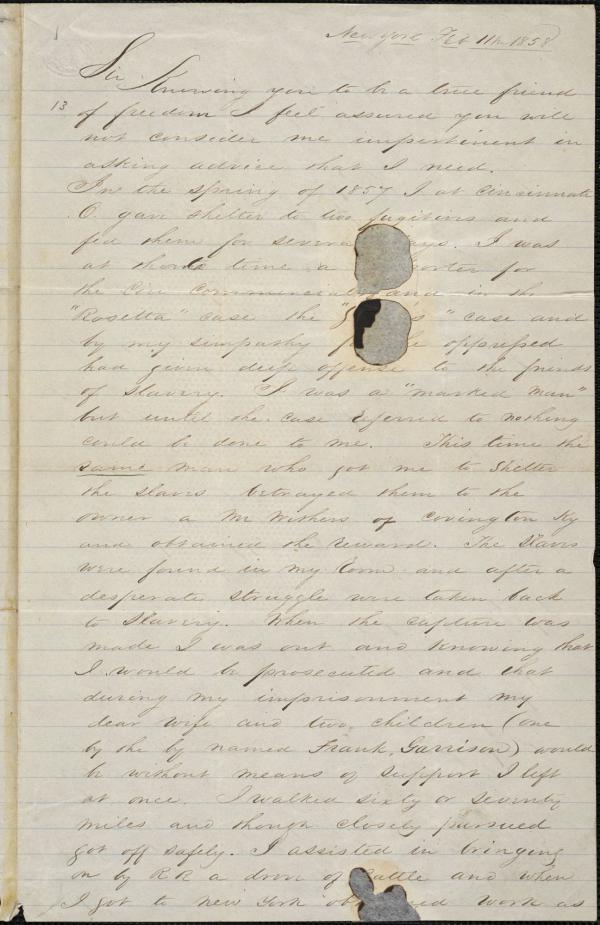 New York Feb 11th 1858
Sir Knowing you to be a true friend
13
of freedom I feel assured you will
not consider me impertinent in
asking advice that I need.
In the spring of 1857 I at Cincinnati
O. gave shelter to two fugitives and
fed them for several days. I was
at that time a porter for
the Cin Commercial and in the
"Rosetta" case the " " case and
by my sympathy for the oppressed
had given deep offense to the friends
of Slavery. I was a "marked man"
but until the case referred to nothing
could be done to me. This time the
same man who got me to Shelter
the slaves betrayed them to the
owner a Mr Withers of Covington Ky
and obtained the reward. The Slaves
were found in my room and after a
desperate struggle were taken back
to Slavery. When the capture was
made I was out and knowing that
I would be prosecuted and that
during my imprisonment my
dear wife and two children (one
by the by named Frank Garrison) would
be without means of support I left
at once. I walked sixty or seventy
miles and though closely pursued
got off safely. I assisted in bringing
on by R R a drove of Cattle and when
I got to New York ob ned work as